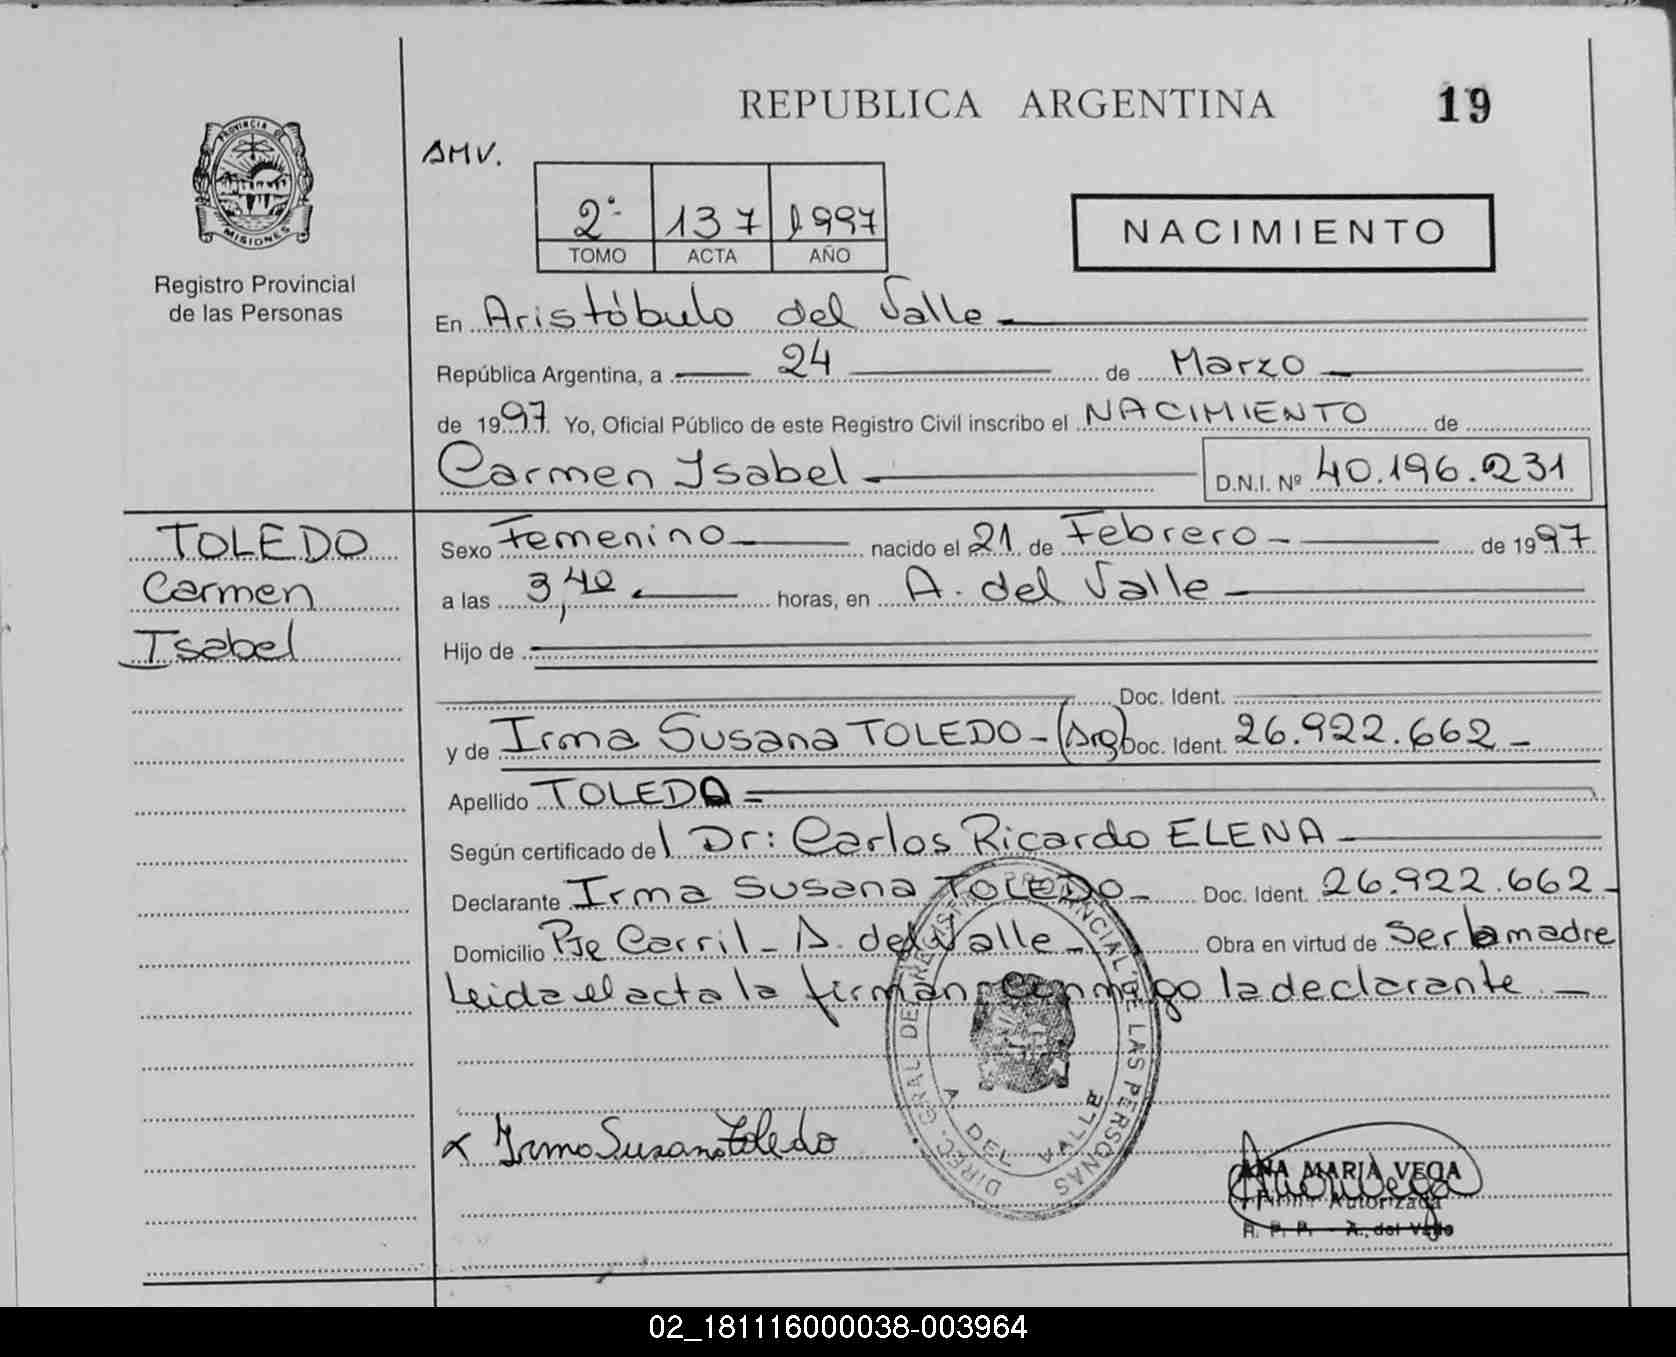 REPUBLICA ARGENTINA 19
PROVINCIA DE
MISIONES
Registro Provincial
de las Personas
AMV.
2º 137 1997
TOMO ACTA AÑO
NACIMIENTO
En Aristóbulo del Valle
República Argentina, a 24 de Marzo
de 1997. Yo, Oficial Público de este Registro Civil inscribo el NACIMIENTO de
Carmen Isabel D.N.I. Nº 40.196.231
TOLEDO
Carmen
Isabel
Sexo Femenino nacido el 21 de Febrero de 1997
a las 3,40 horas, en A. del Valle
Hijo de
Doc. Ident.
y de Irma Susana TOLEDO - (Arg) Doc. Ident. 26.922.662
Apellido TOLEDO
Según certificado del Dr: Carlos Ricardo ELENA
Declarante Irma Susana TOLEDO Doc. Ident. 26.922.662
Domicilio Pje Carril - A. del Valle - Obra en virtud de Ser la madre
Leida el acta la firman conmigo la declarante
DIREC. GRAL DEL REGISTRO PROVINCIAL DE LAS PERSONAS
A. DEL VALLE
x Irma Susana Toledo
ANA MARIA VEGA
Autorizada
R. P. P. - A. del Valle
02_181116000038-003964